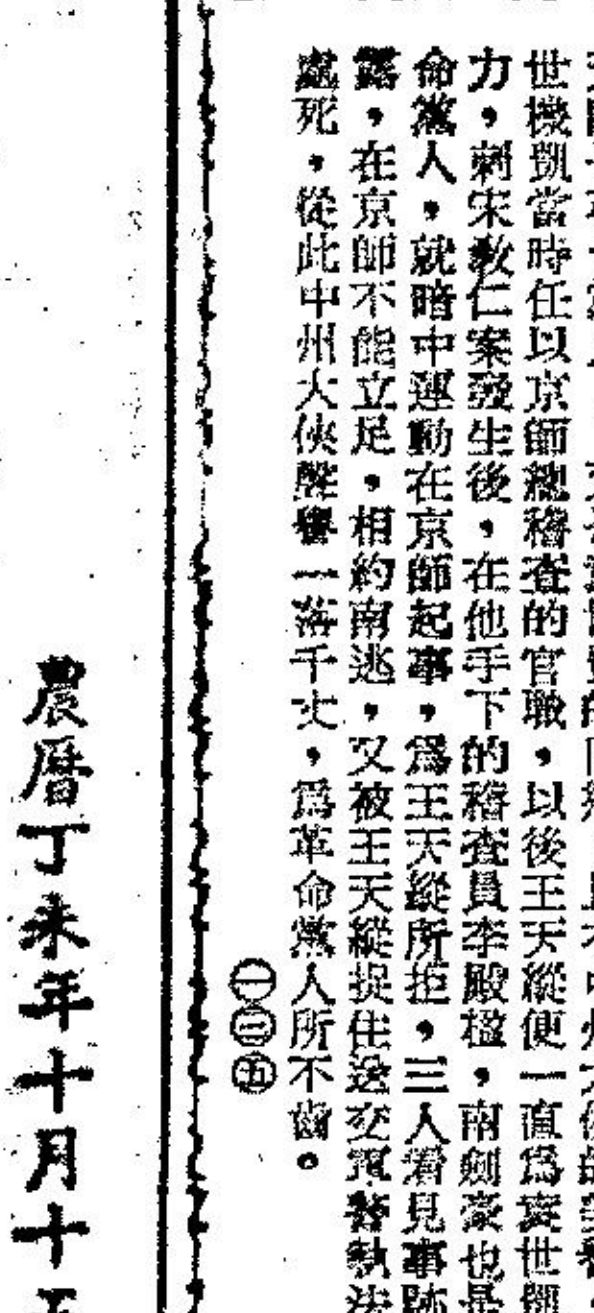 世機凱當時任以京師總稽查的官職，以後王天縱便一直爲袁世凱
力，刺宋教仁案發生後，在他手下的稽查員李殿楹，南劍豪也是
命黨人，就暗中運動在京師起事，爲王天縱所拒，三人看見事跡
露，在京師不能立足，相約南逃，又被王天縱捉住送交軍警執法
處死，從此中州大俠聲譽一落千丈，爲革命黨人所不齒。
㊀㊂㊄
農曆丁未年十月十五